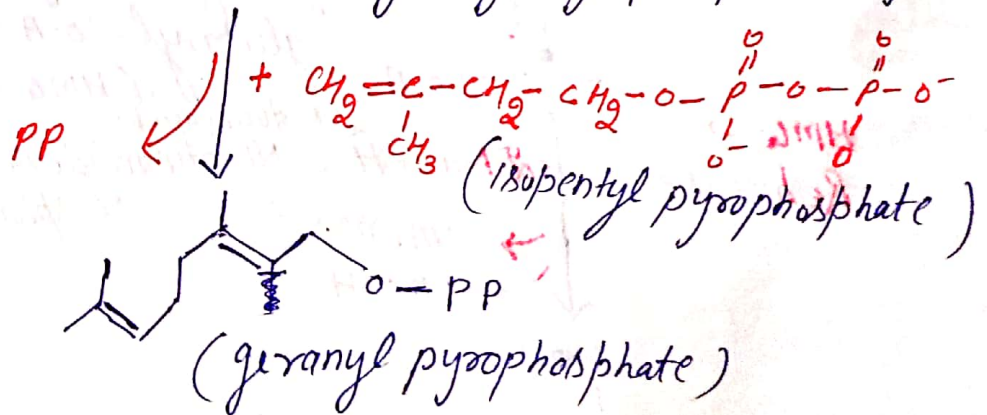 O O
+ CH2=C-CH2-CH2-O-P-O-P-O-
PP CH3 O- O
(isopentyl pyrophosphate)
O-PP
(geranyl pyrophosphate)